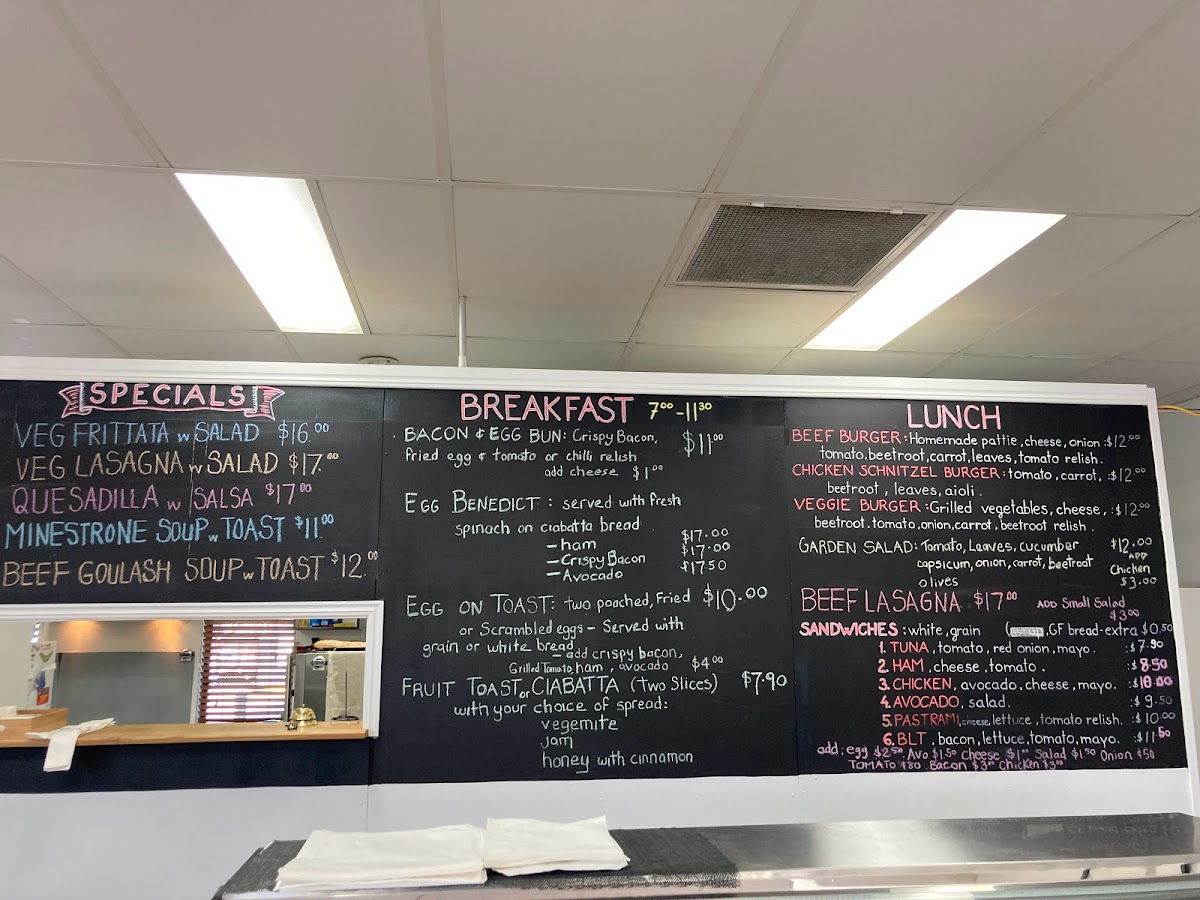 SPECIALS
VEG FRITTATA w SALAD $16.00
VEG LASAGNA w SALAD $17.00
QUESADILLA w SALSA $17.00
MINESTRONE SOUP w TOAST $11.00
BEEF GOULASH SOUP w TOAST $12.00
BREAKFAST 7⁰⁰-11³⁰
BACON & EGG BUN: Crispy Bacon, $11⁰⁰
Fried egg & tomato or chilli relish
add cheese $1⁰⁰
EGG BENEDICT: served with fresh
spinach on ciabatta bread
- ham $17.00
- Crispy Bacon $17.00
- Avocado $17.50
EGG ON TOAST: two poached, Fried $10.00
or Scrambled eggs - Served with
grain or white bread
- add crispy bacon,
Grilled Tomato, ham, avocado $4⁰⁰
FRUIT TOAST or CIABATTA (Two Slices) $7.90
with your choice of spread:
vegemite
jam
honey with cinnamon
LUNCH
BEEF BURGER: Homemade pattie, cheese, onion :$12⁰⁰
tomato, beetroot, carrot, leaves, tomato relish.
CHICKEN SCHNITZEL BURGER: tomato, carrot, :$12⁰⁰
beetroot, leaves, aioli.
VEGGIE BURGER: Grilled vegetables, cheese, :$12⁰⁰
beetroot. tomato, onion, carrot, beetroot relish.
GARDEN SALAD: Tomato, Leaves, cucumber $12.00
capsicum, onion, carrot, beetroot
olives
ADD
Chicken
$3.00
BEEF LASAGNA $17⁰⁰ ADD Small Salad
$3⁰⁰
SANDWICHES: white, grain ( , GF bread-extra $0.50
1. TUNA, tomato, red onion, mayo. :$7.90
2. HAM, cheese, tomato. :$8.50
3. CHICKEN, avocado, cheese, mayo. :$10.00
4. AVOCADO, salad. :$9.50
5. PASTRAMI, cheese, lettuce, tomato relish. :$10.00
6. BLT, bacon, lettuce, tomato, mayo. :$11.50
add: egg $2⁵⁰ Avo $1.50 Cheese $1⁰⁰ Salad $1.50 Onion ¢50
TOMATO ¢80 Bacon $3⁰⁰ Chicken $3⁰⁰